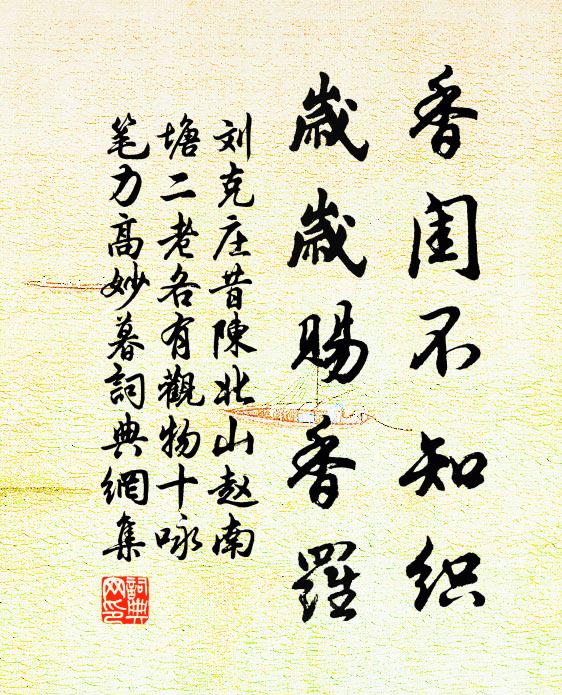 香闺不知织
歲歲赐香羅
刘克庄昔陳北山赵南
塘二老各有觀物十咏
笔力高妙暮詞典網集
詞典网印